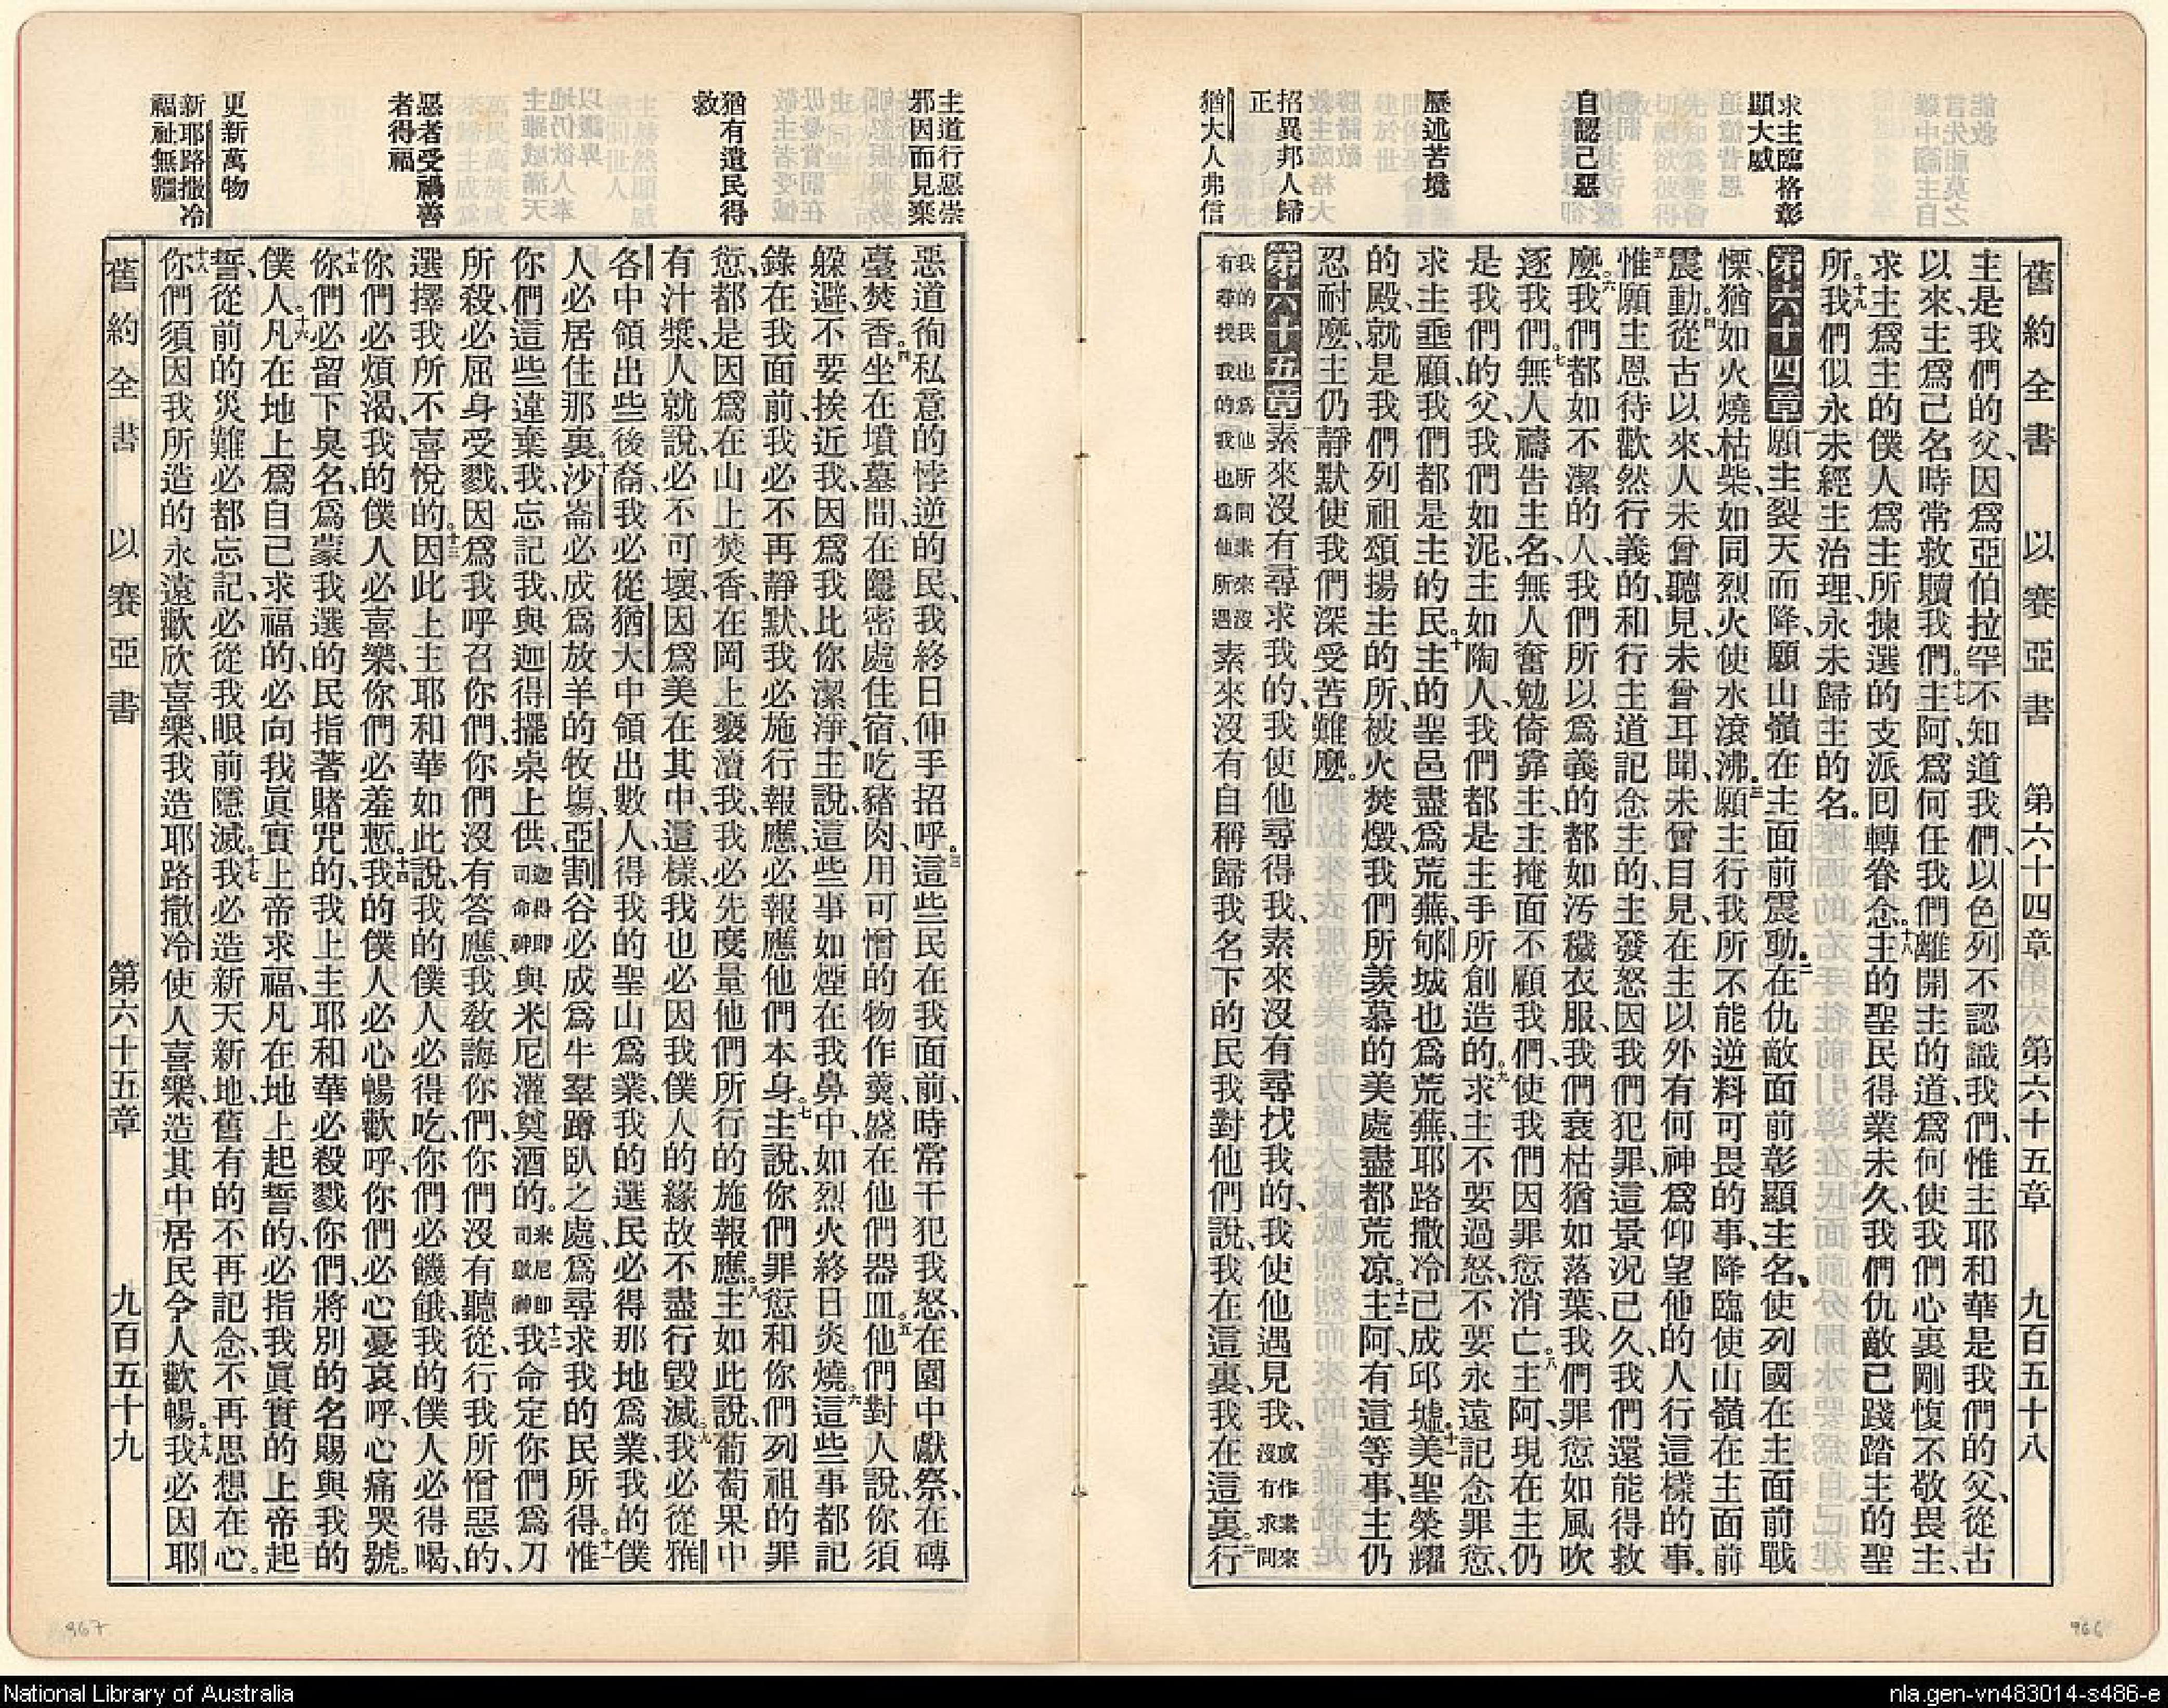 舊約全書 以賽亞書 第六十四章 第六十五章 九百五十八
求主臨格彰
顯大威
自認己惡
歷述苦境
招異邦人歸
正
猶大人弗信
主是我們的父、因爲亞伯拉罕不知道我們、以色列不認識我們、惟主耶和華是我們的父、從古
以來、主爲己名時常救贖我們。十七主阿、爲何任我們離開主的道、爲何使我們心裏剛愎不敬畏主、
求主爲主的僕人爲主所揀選的支派回轉眷念。十八主的聖民得業未久、我們仇敵已踐踏主的聖
所。十九我們似永未經主治理、永未歸主的名。
第六十四章 一願主裂天而降、願山嶺在主面前震動。二在仇敵面前彰顯主名、使列國在主面前戰
慄、猶如火燒枯柴、如同烈火使水滾沸。三願主行我所不能逆料可畏的事、降臨使山嶺在主面前
震動。四從古以來、人未曾聽見、未曾耳聞、未曾目見、在主以外有何神爲仰望他的人行這樣的事。
五惟願主恩待歡然行義的、和行主道記念主的、主發怒因我們犯罪、這景況已久、我們還能得救
麼。六我們都如不潔的人、我們所以爲義的都如汚穢衣服、我們衰枯猶如落葉、我們罪愆如風吹
逐我們。七無人禱告主名、無人奮勉倚靠主、主掩面不顧我們、使我們因罪愆消亡。八主阿、現在主仍
是我們的父、我們如泥、主如陶人、我們都是主手所創造的。九求主不要過怒、不要永遠記念罪愆、
求主垂顧、我們都是主的民。十主的聖邑盡爲荒蕪、郇城也爲荒蕪、耶路撒冷已成邱墟。十一美聖榮耀
的殿、就是我們列祖頌揚主的所、被火焚燬、我們所羨慕的美處盡都荒凉。十二主阿、有這等事、主仍
忍耐麼、主仍靜默使我們深受苦難麼。
第六十五章 一素來沒有尋求我的、我使他尋得我、素來沒有尋找我的、我使他遇見我、或作素來沒有求問
我的我也爲他所問素來沒有尋找我的我也爲他所遇素來沒有自稱歸我名下的民、我對他們說、我在這裏、我在這裏。二行
主道行惡崇
邪因而見棄
猶有遺民得
救
惡者受禍善
者得福
更新萬物
新耶路撒冷
福祉無疆
惡道徇私意的悖逆的民、我終日伸手招呼。三這些民在我面前、時常干犯我怒、在園中獻祭、在磚
臺焚香。四坐在墳墓間、在隱密處住宿、吃豬肉、用可憎的物作羹、盛在他們器皿。五他們對人說、你須
躱避、不要挨近我、因爲我比你潔淨、主說、這些事如煙在我鼻中、如烈火終日炎燒。六這些事都記
錄在我面前、我必不再靜默、我必施行報應、必報應他們本身。七主說、你們罪愆和你們列祖的罪
愆、都是因爲在山上焚香、在岡上褻瀆我、我必先度量他們所行的施報應。八主如此說、葡萄果中
有汁漿、人就說、必不可壞、因爲美在其中、這樣、我也必因我僕人的緣故不盡行毀滅。九我必從雅
各中領出些後裔、我必從猶大中領出數人、得我的聖山爲業、我的選民必得那地爲業、我的僕
人必居住那裏。十沙崙必成爲放羊的牧塲、亞割谷必成爲牛羣蹲臥之處、爲尋求我的民所得。十一惟
你們這些違棄我、忘記我、與迦得擺桌上供、迦得卽司命神與米尼灌奠酒的。米尼卽司祿神十二我命定你們爲刀
所殺、必屈身受戮、因爲我呼召你們、你們沒有答應、我敎誨你們、你們沒有聽從、行我所憎惡的、
選擇我所不喜悅的。十三因此上主耶和華如此說、我的僕人必得吃、你們必饑餓、我的僕人必得喝、
你們必煩渴、我的僕人必喜樂、你們必羞慙。十四我的僕人必心暢歡呼、你們必心憂哀呼、心痛哭號。
十五你們必留下臭名、爲蒙我選的民指著賭咒的、我上主耶和華必殺戮你們、將別的名賜與我的
僕人。十六凡在地上爲自己求福的、必向我眞實上帝求福、凡在地上起誓的、必指我眞實的上帝起
誓、從前的災難必都忘記、必從我眼前隱滅。十七我必造新天新地、舊有的不再記念、不再思想在心。
十八你們須因我所造的永遠歡欣喜樂、我造耶路撒冷使人喜樂、造其中居民令人歡暢。十九我必因耶
舊約全書 以賽亞書 第六十五章 九百五十九
967
966
National Library of Australia
nla.gen-vn483014-s486-e